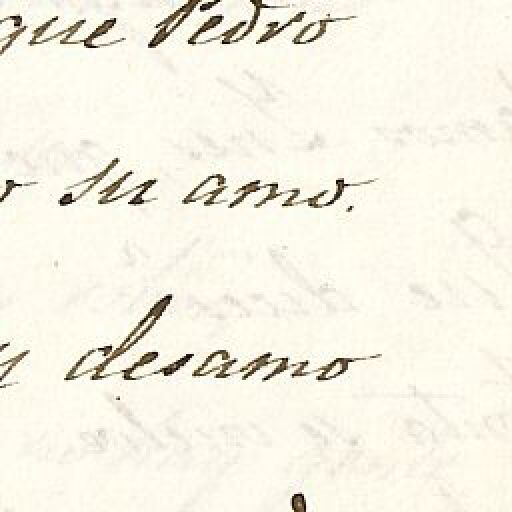 que Pedro
su amo.
desamo